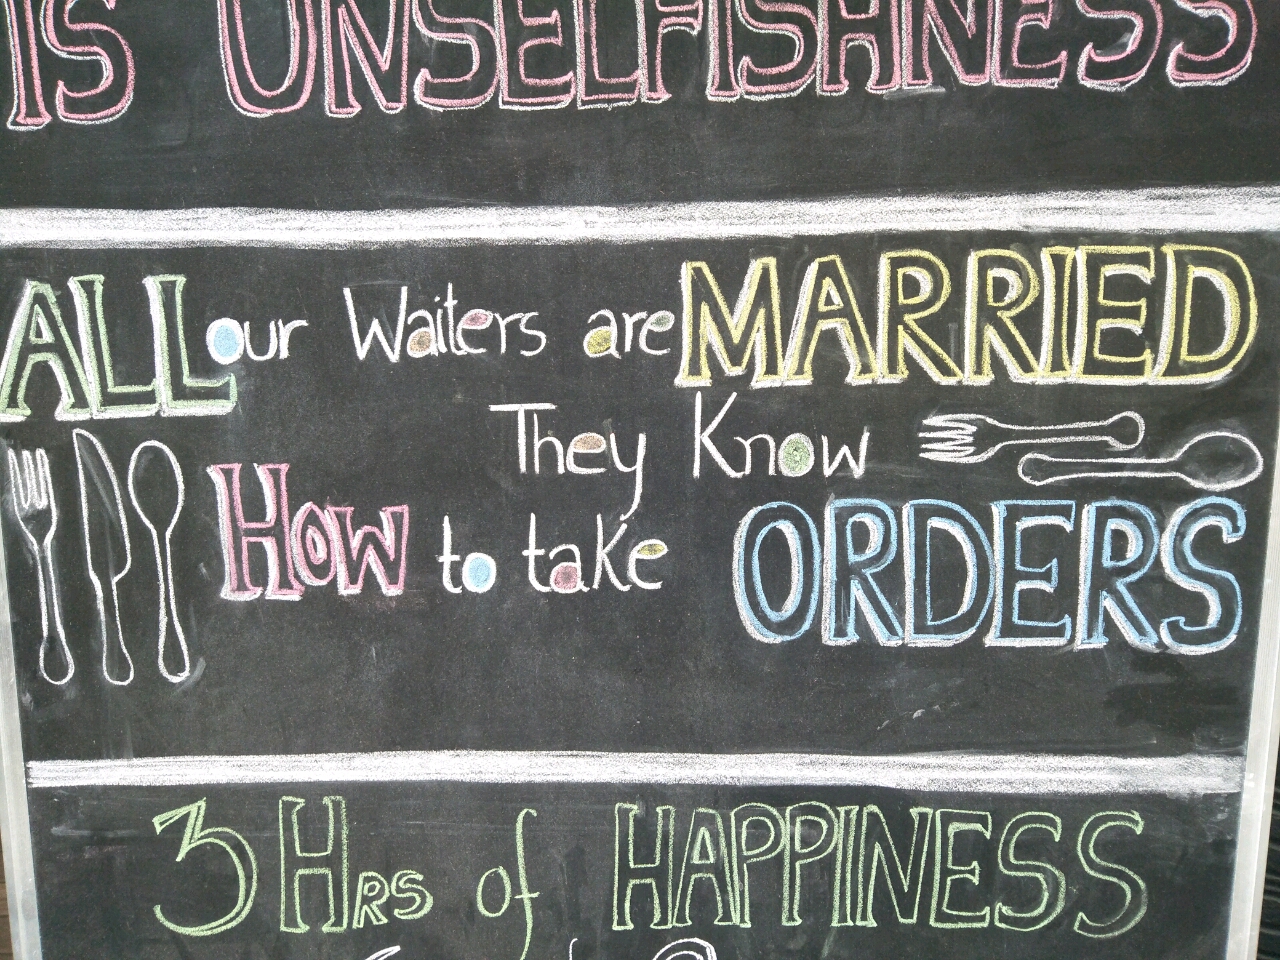 IS UNSELFISHNESS
ALL our Waiters are MARRIED
They Know
How to take ORDERS
3 HRS of HAPPINESS